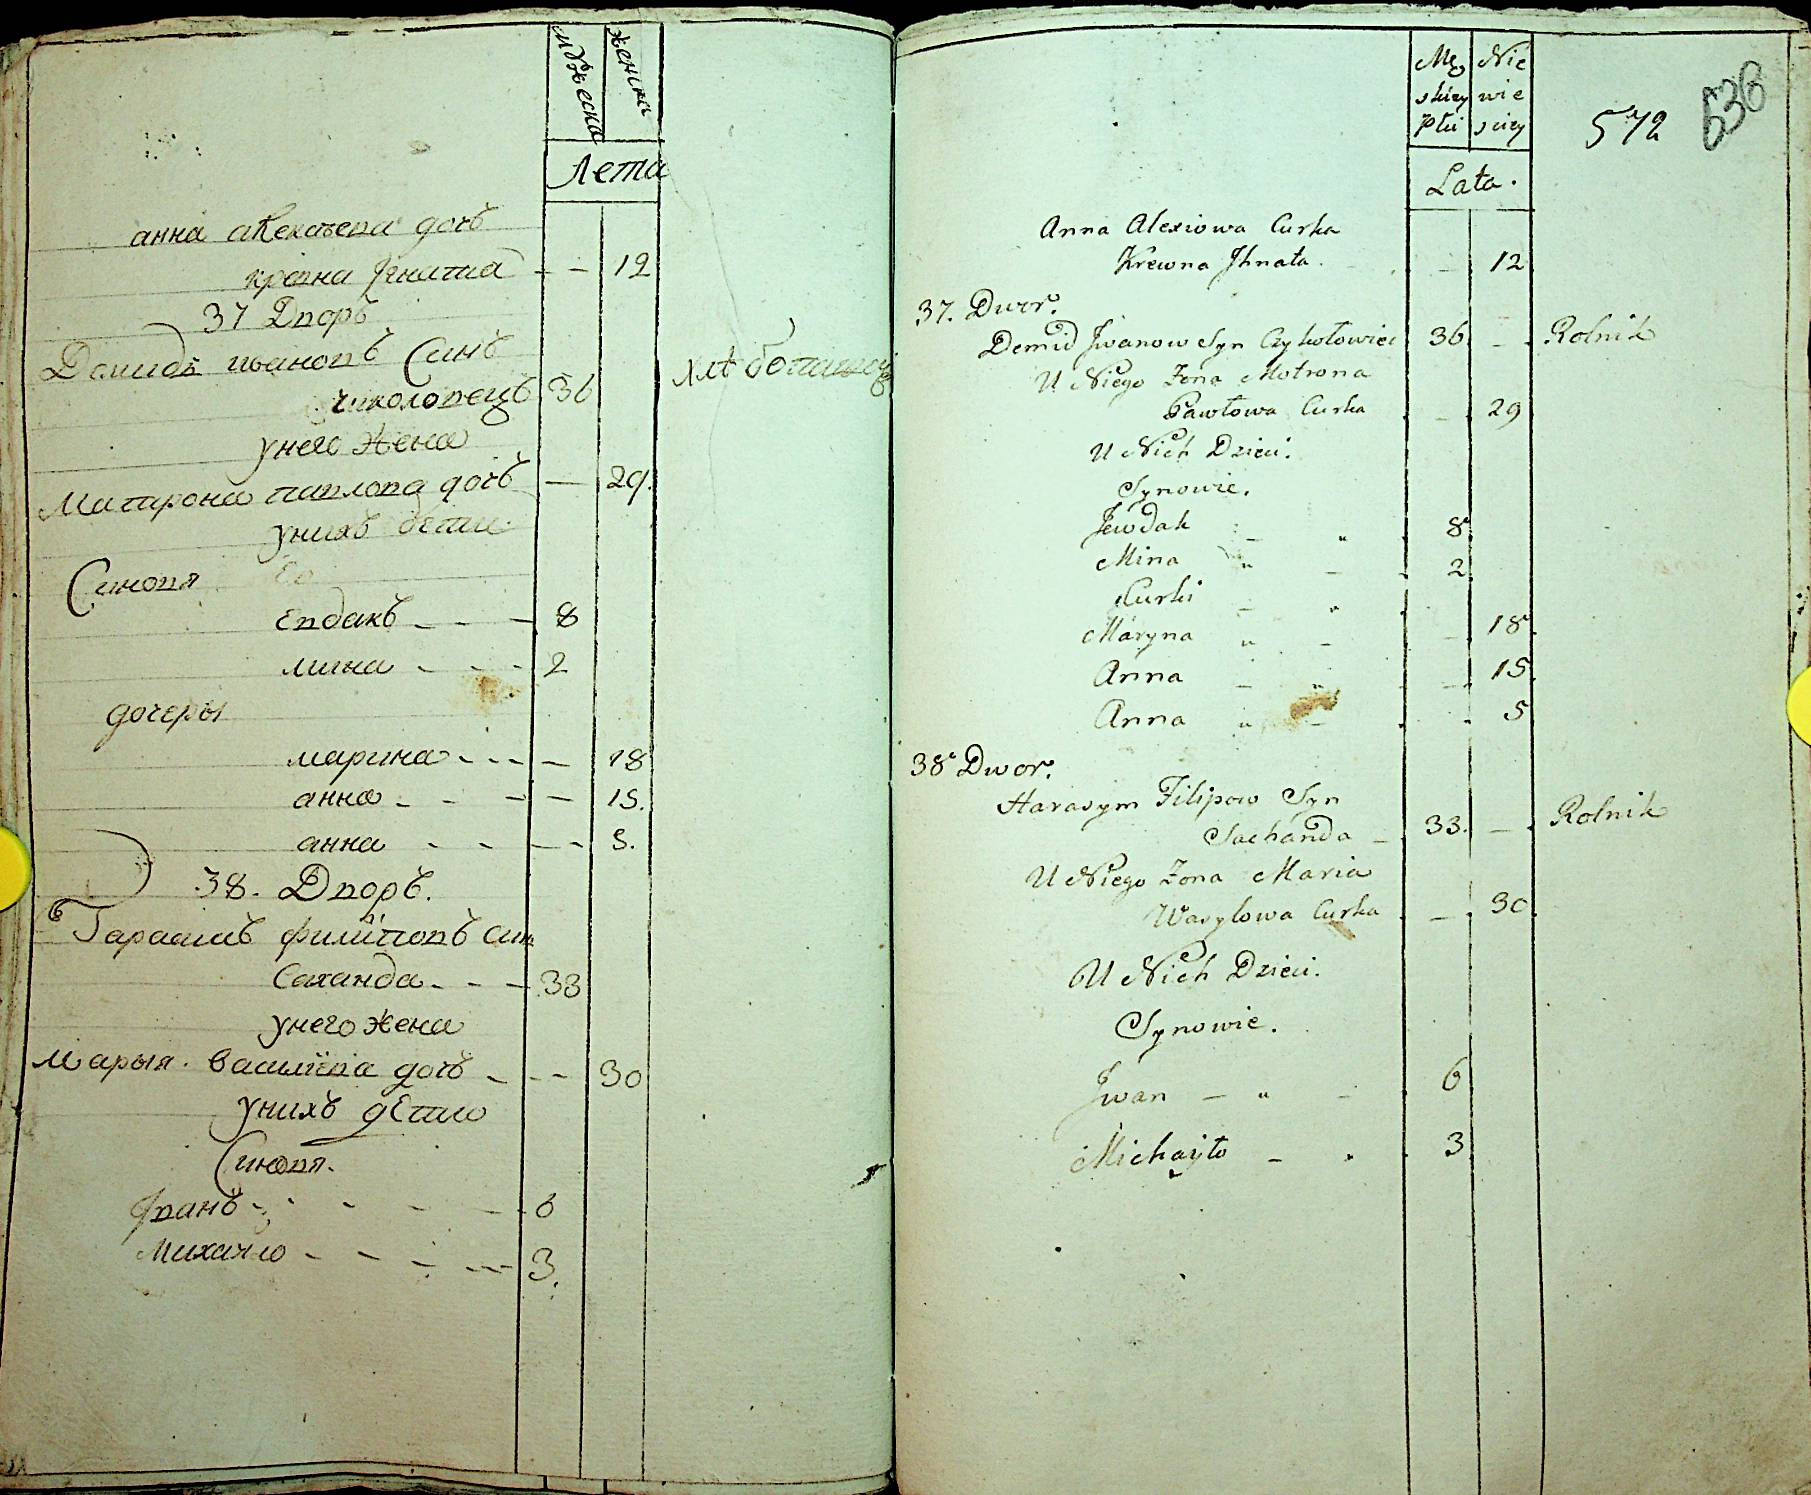 мужеска
женска
Лета
анна алексѣева дочъ
кревна Ігната - - 12
37 Дворъ
Демидъ ивановъ Синъ
чиколовецъ 36 хлѣбопашец
унего жена
Матрона павлова дочъ — 29.
унихъ дети.
Синовя
Евдакъ - - - 8
мина - - - 2
дочеры
марина - - - — 18
анна - - - — 15.
анна - - - - 5.
38. Дворъ.
Гарасимъ филиповъ син
Саханда - - - 33
унего жена
Марыя василіева дочъ - - - 30
унихъ дети
Синовя.
Іванъ - - - - 6
Михайло - - - - 3.
Mę Nie
skiey wie
Płci sciey
572
538
Lata.
Anna Alexiowa Curka
Krewna Jhnata. - 12
37. Dwor.
Demid Jwanow Syn Czykołowiec 36 - Rolnik
U Niego Zona Motrona
Pawłowa Curka - 29
U Nich Dzieci.
Synowie.
Jewdak - " 8
Mina " - 2
Curki - "
Maryna " - - 18
Anna - " - 15
Anna " - - 5
38 Dwor.
Harasym Filipow Syn
Sachanda - 33. - Rolnik
U Niego Zona Maria
Wasylowa Curka - 30
U Nich Dzieci.
Synowie.
Jwan - " - 6
Michayło - " 3